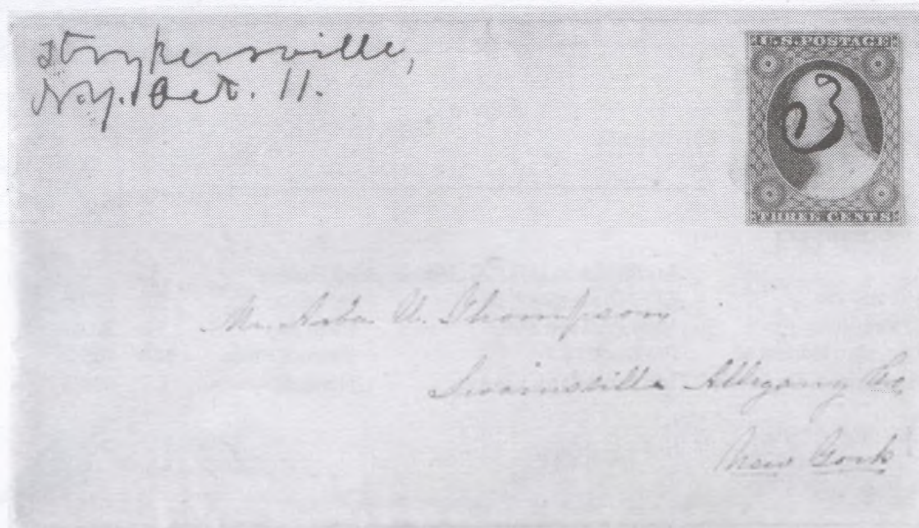 Strykersville,
N.Y. Oct. 11.
U.S. POSTAGE
3
THREE CENTS
Mr. Arba U. Thompson
Swainsville Allegany Co
New York